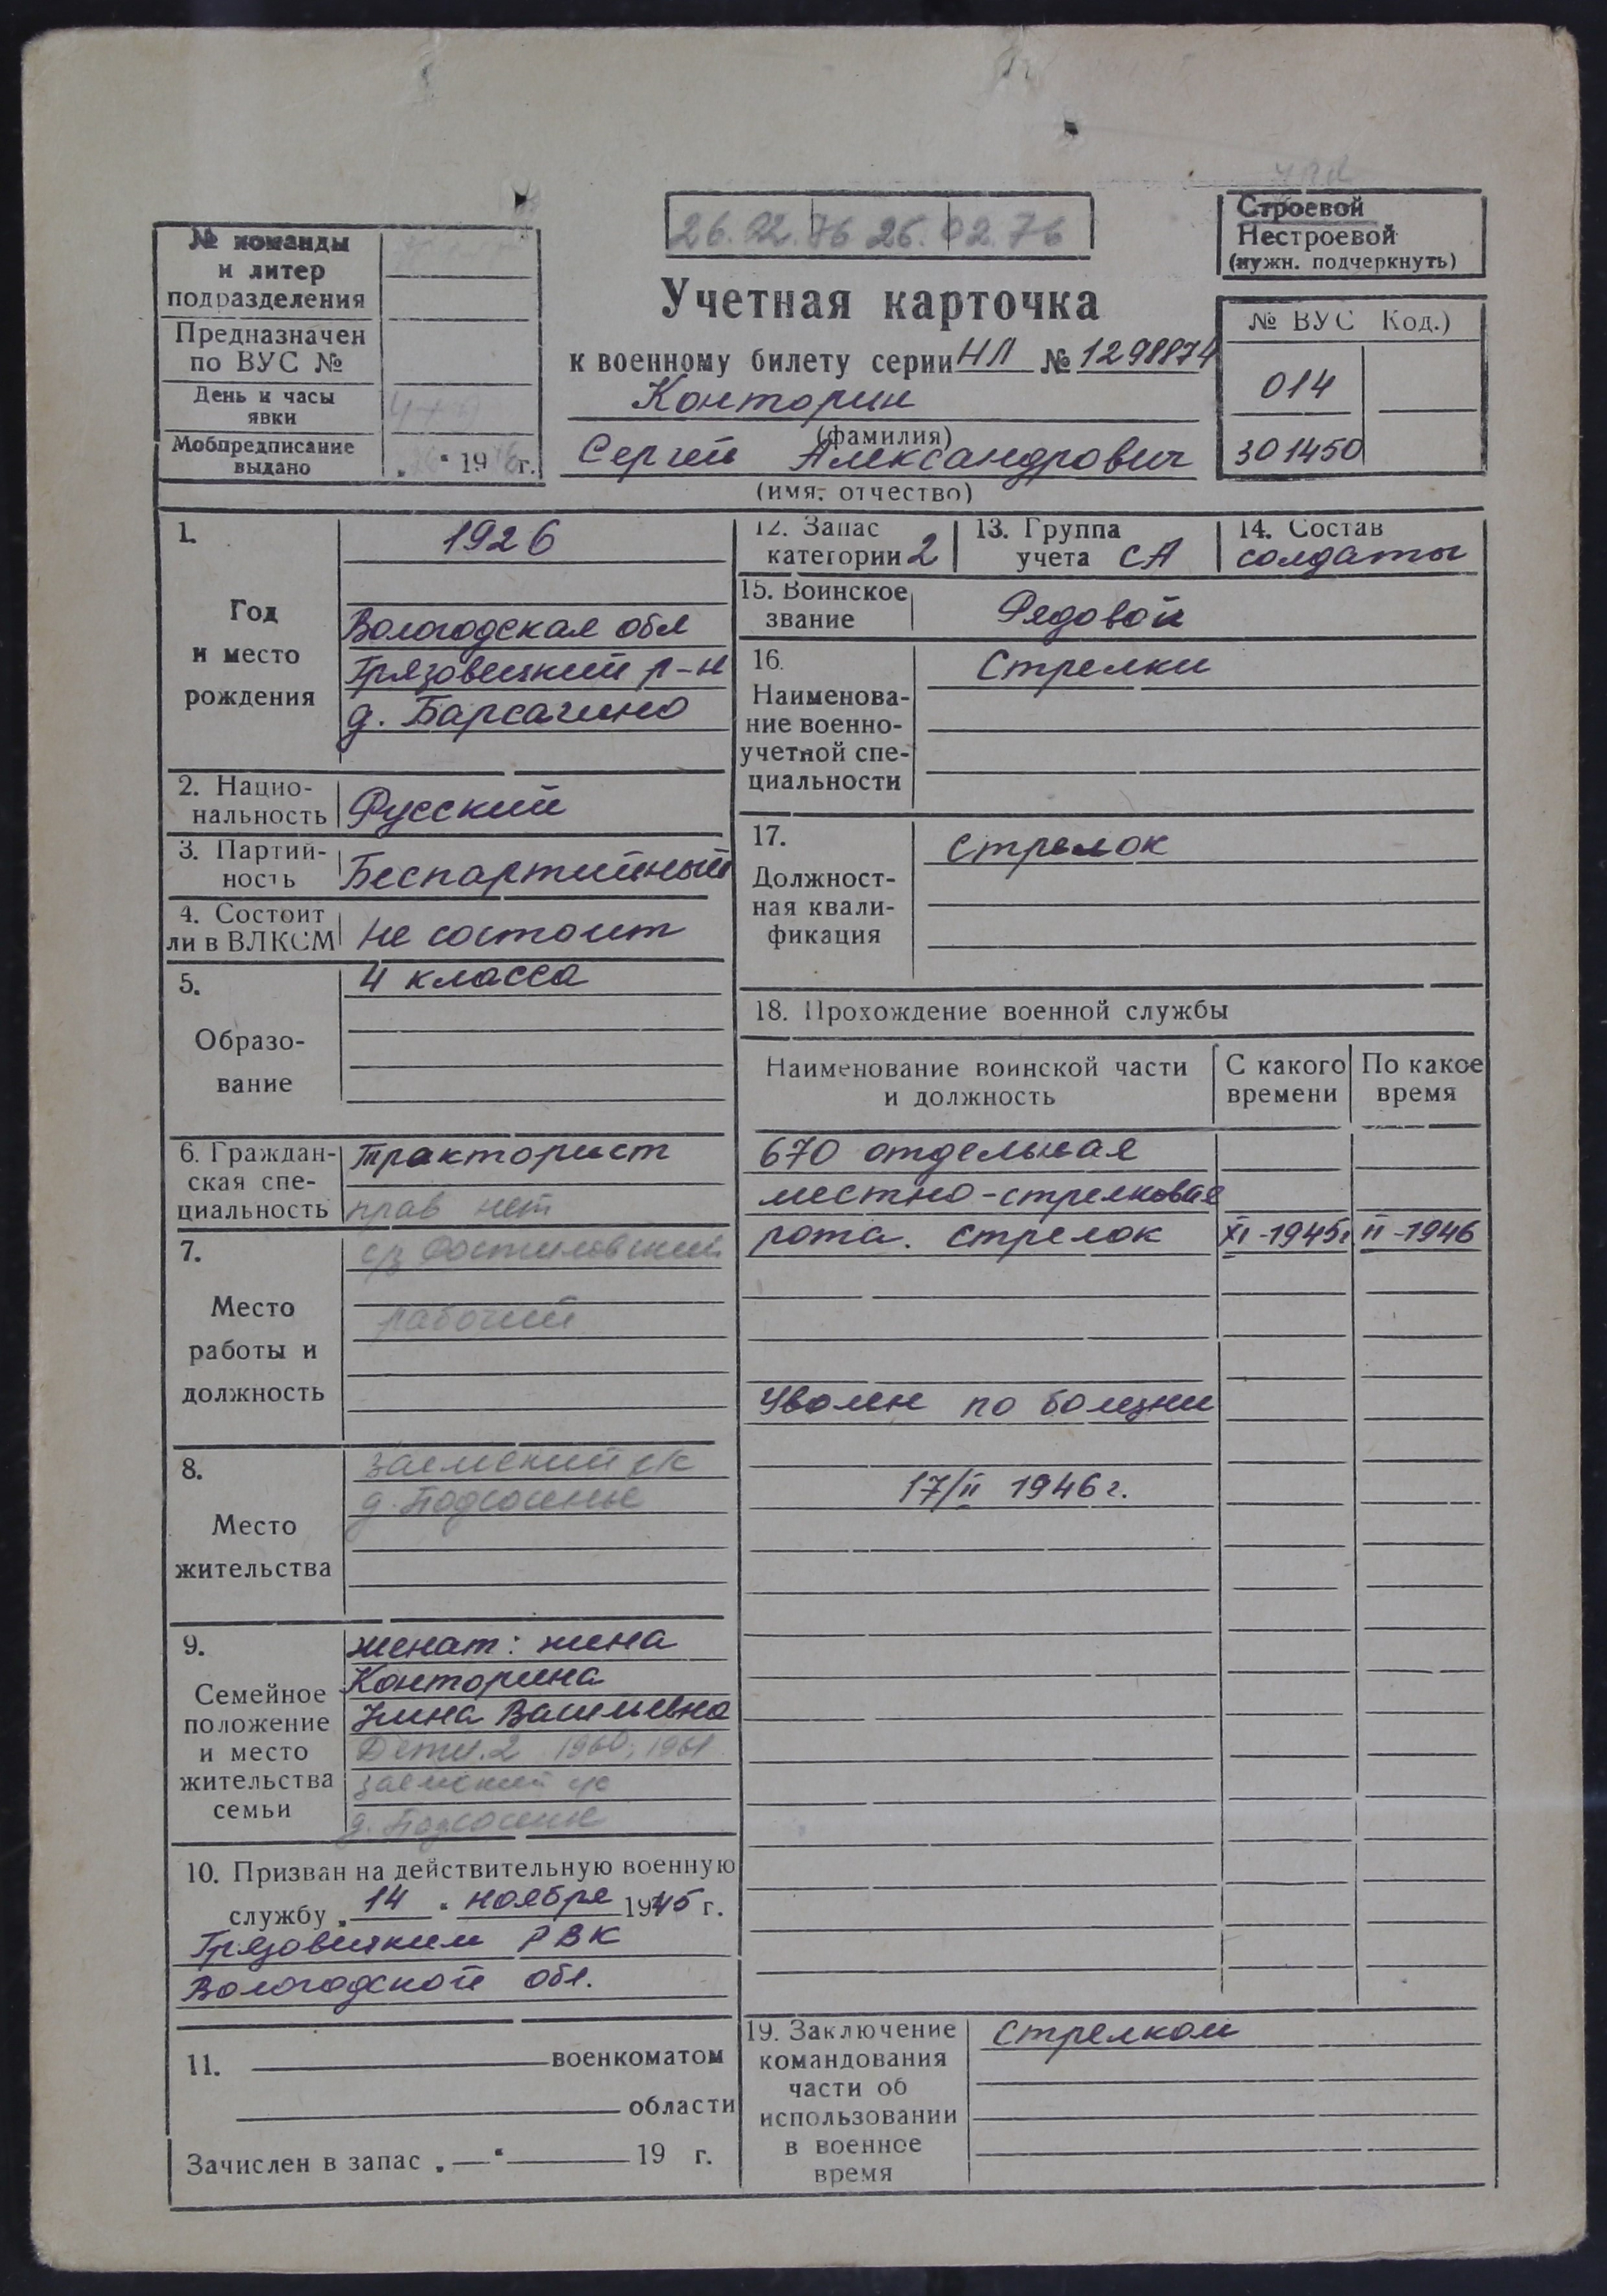 Строевой
Нестроевой
(нужн. подчеркнуть)
26.02.76 26.02.76
№ команды
и литер
подразделения
Предназначен
по ВУС №
День и часы
явки
Мобпредписание
выдано
„ “ 19 г.
Учетная карточка
к военному билету серии НЛ № 1298874
Конторин
(фамилия)
Сергей Александрович
(имя, отчество)
№ ВУС Код.)
014
301450
1.
Год
и место
рождения
1926
Вологодская обл
Грязовецкий р-н
д. Барсагино
2. Нацио-
нальность
Русский
3. Партий-
ность
Беспартийный
4. Состоит
ли в ВЛКСМ
Не состоит
5.
Образо-
вание
4 класса
6. Граждан-
ская спе-
циальность
Тракторист
прав нет
7.
Место
работы и
должность
рабочий
8.
Место
жительства
Заемский с/с
д. Подсосенье
9.
Семейное
положение
и место
жительства
семьи
женат: жена
Конторина
Нина Васильевна
Дети. 2 1960, 1961
Заемский с/с
д. Подсосенье
10. Призван на действительную военную
службу „ 14 “ ноября 1945 г.
Грязовецким РВК
Вологодской обл.
11. военкоматом
области
Зачислен в запас „—“ 19 г.
12. Запас
категории 2
13. Группа
учета СА
14. Состав
солдаты
15. Воинское
звание
Рядовой
16.
Наименова-
ние военно-
учетной спе-
циальности
Стрелки
17.
Должност-
ная квали-
фикация
стрелок
18. Прохождение военной службы
Наименование воинской части
и должность
С какого
времени
По какое
время
670 отдельная
местно-стрелковая
рота. стрелок XI-1945г II-1946
Уволен по болезни
17/II 1946 г.
19. Заключение
командования
части об
использовании
в военное
время
стрелком